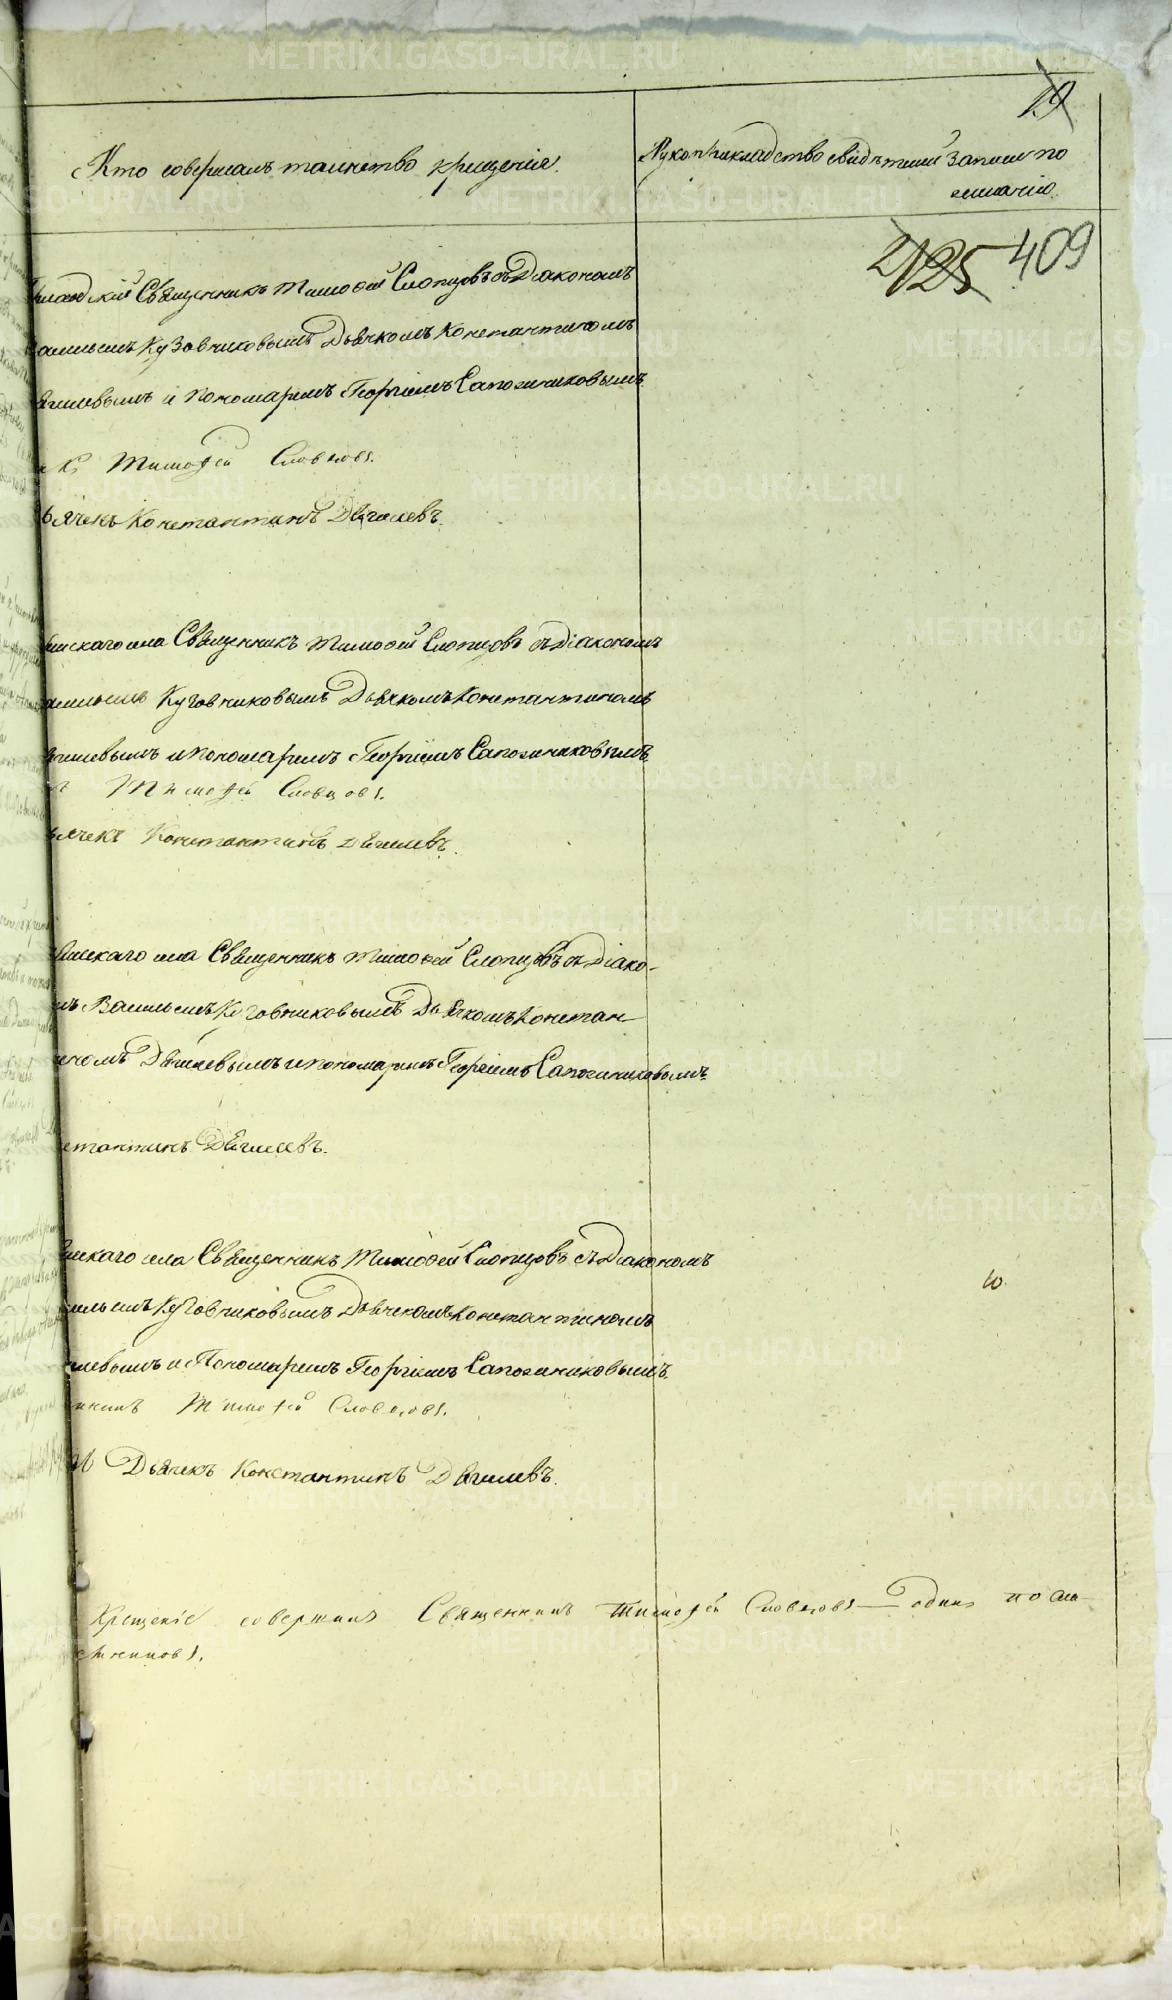 19
Кто совершалъ таинство крещенія.
Рукоприкладство свидѣтелей записи по
желанію.
2125 409
Священникъ Тимофей Словцовъ съ Діакономъ
Кузовниковымъ Дьячкомъ Константиномъ
и пономаремъ Георгіемъ Сапожниковымъ
Тимофей Словцовъ.
Константинъ Дягилевъ.
села Священникъ Тимофей Словцовъ съ Діакономъ
Кузовниковымъ Дьячкомъ Константиномъ
и пономаремъ Георгіемъ Сапожниковымъ
Тимофей Словцовъ.
Константинъ Дягилевъ.
села Священникъ Тимофей Словцовъ съ Діако-
Васильемъ Кузовниковымъ Дьячкомъ Констан
Дягилевымъ и пономаремъ Георгіемъ Сапожниковымъ.
Дягилевъ.
села Священникъ Тимофей Словцовъ съ Діакономъ
Кузовниковымъ Дьячкомъ Константиномъ
и Пономаремъ Георгіемъ Сапожниковымъ.
Тимофей Словцовъ.
Дьячекъ Константинъ Дягилевъ.
Крещеніе совершилъ Священникъ Тимофей Словцовъ одинъ